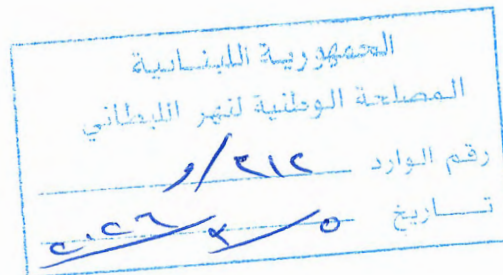 الجمهورية اللبنانية
المصلحة الوطنية لنهر الليطاني
رقم الوارد ٢١٢/و
تاريخ ٥/٣/٢٠٢٦